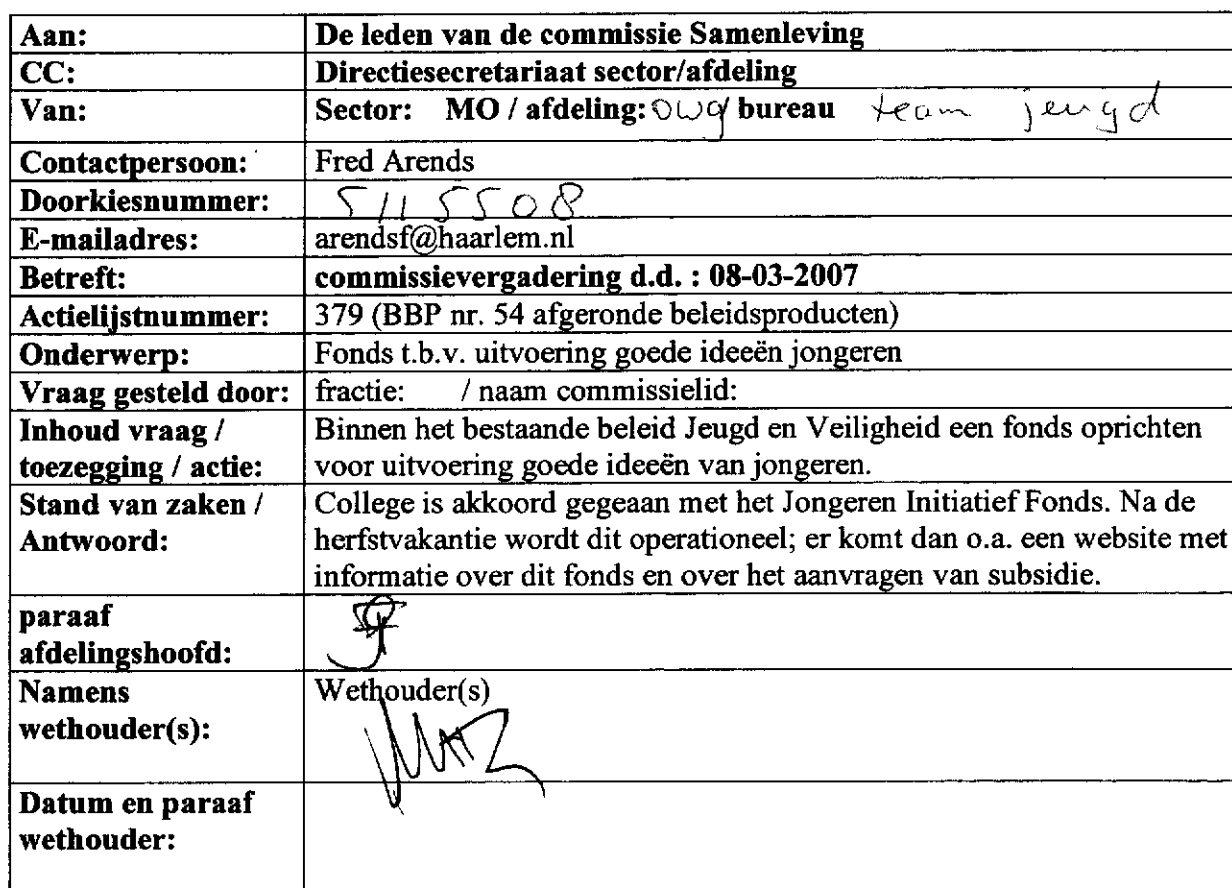 Aan: De leden van de commissie Samenleving
CC: Directiesecretariaat sector/afdeling
Van: Sector: MO / afdeling: OWG / bureau team jeugd
Contactpersoon: Fred Arends
Doorkiesnummer: 5115508
E-mailadres: arendsf@haarlem.nl
Betreft: commissievergadering d.d. : 08-03-2007
Actielijstnummer: 379 (BBP nr. 54 afgeronde beleidsproducten)
Onderwerp: Fonds t.b.v. uitvoering goede ideeën jongeren
Vraag gesteld door: fractie: / naam commissielid:
Inhoud vraag / Binnen het bestaande beleid Jeugd en Veiligheid een fonds oprichten
toezegging / actie: voor uitvoering goede ideeën van jongeren.
Stand van zaken / College is akkoord gegeaan met het Jongeren Initiatief Fonds. Na de
Antwoord: herfstvakantie wordt dit operationeel; er komt dan o.a. een website met
informatie over dit fonds en over het aanvragen van subsidie.
paraaf
afdelingshoofd:
Namens Wethouder(s)
wethouder(s):
Datum en paraaf
wethouder: